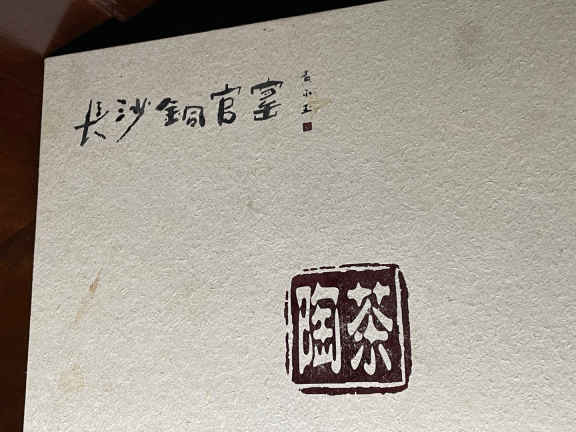 長沙銅官窑
茶陶